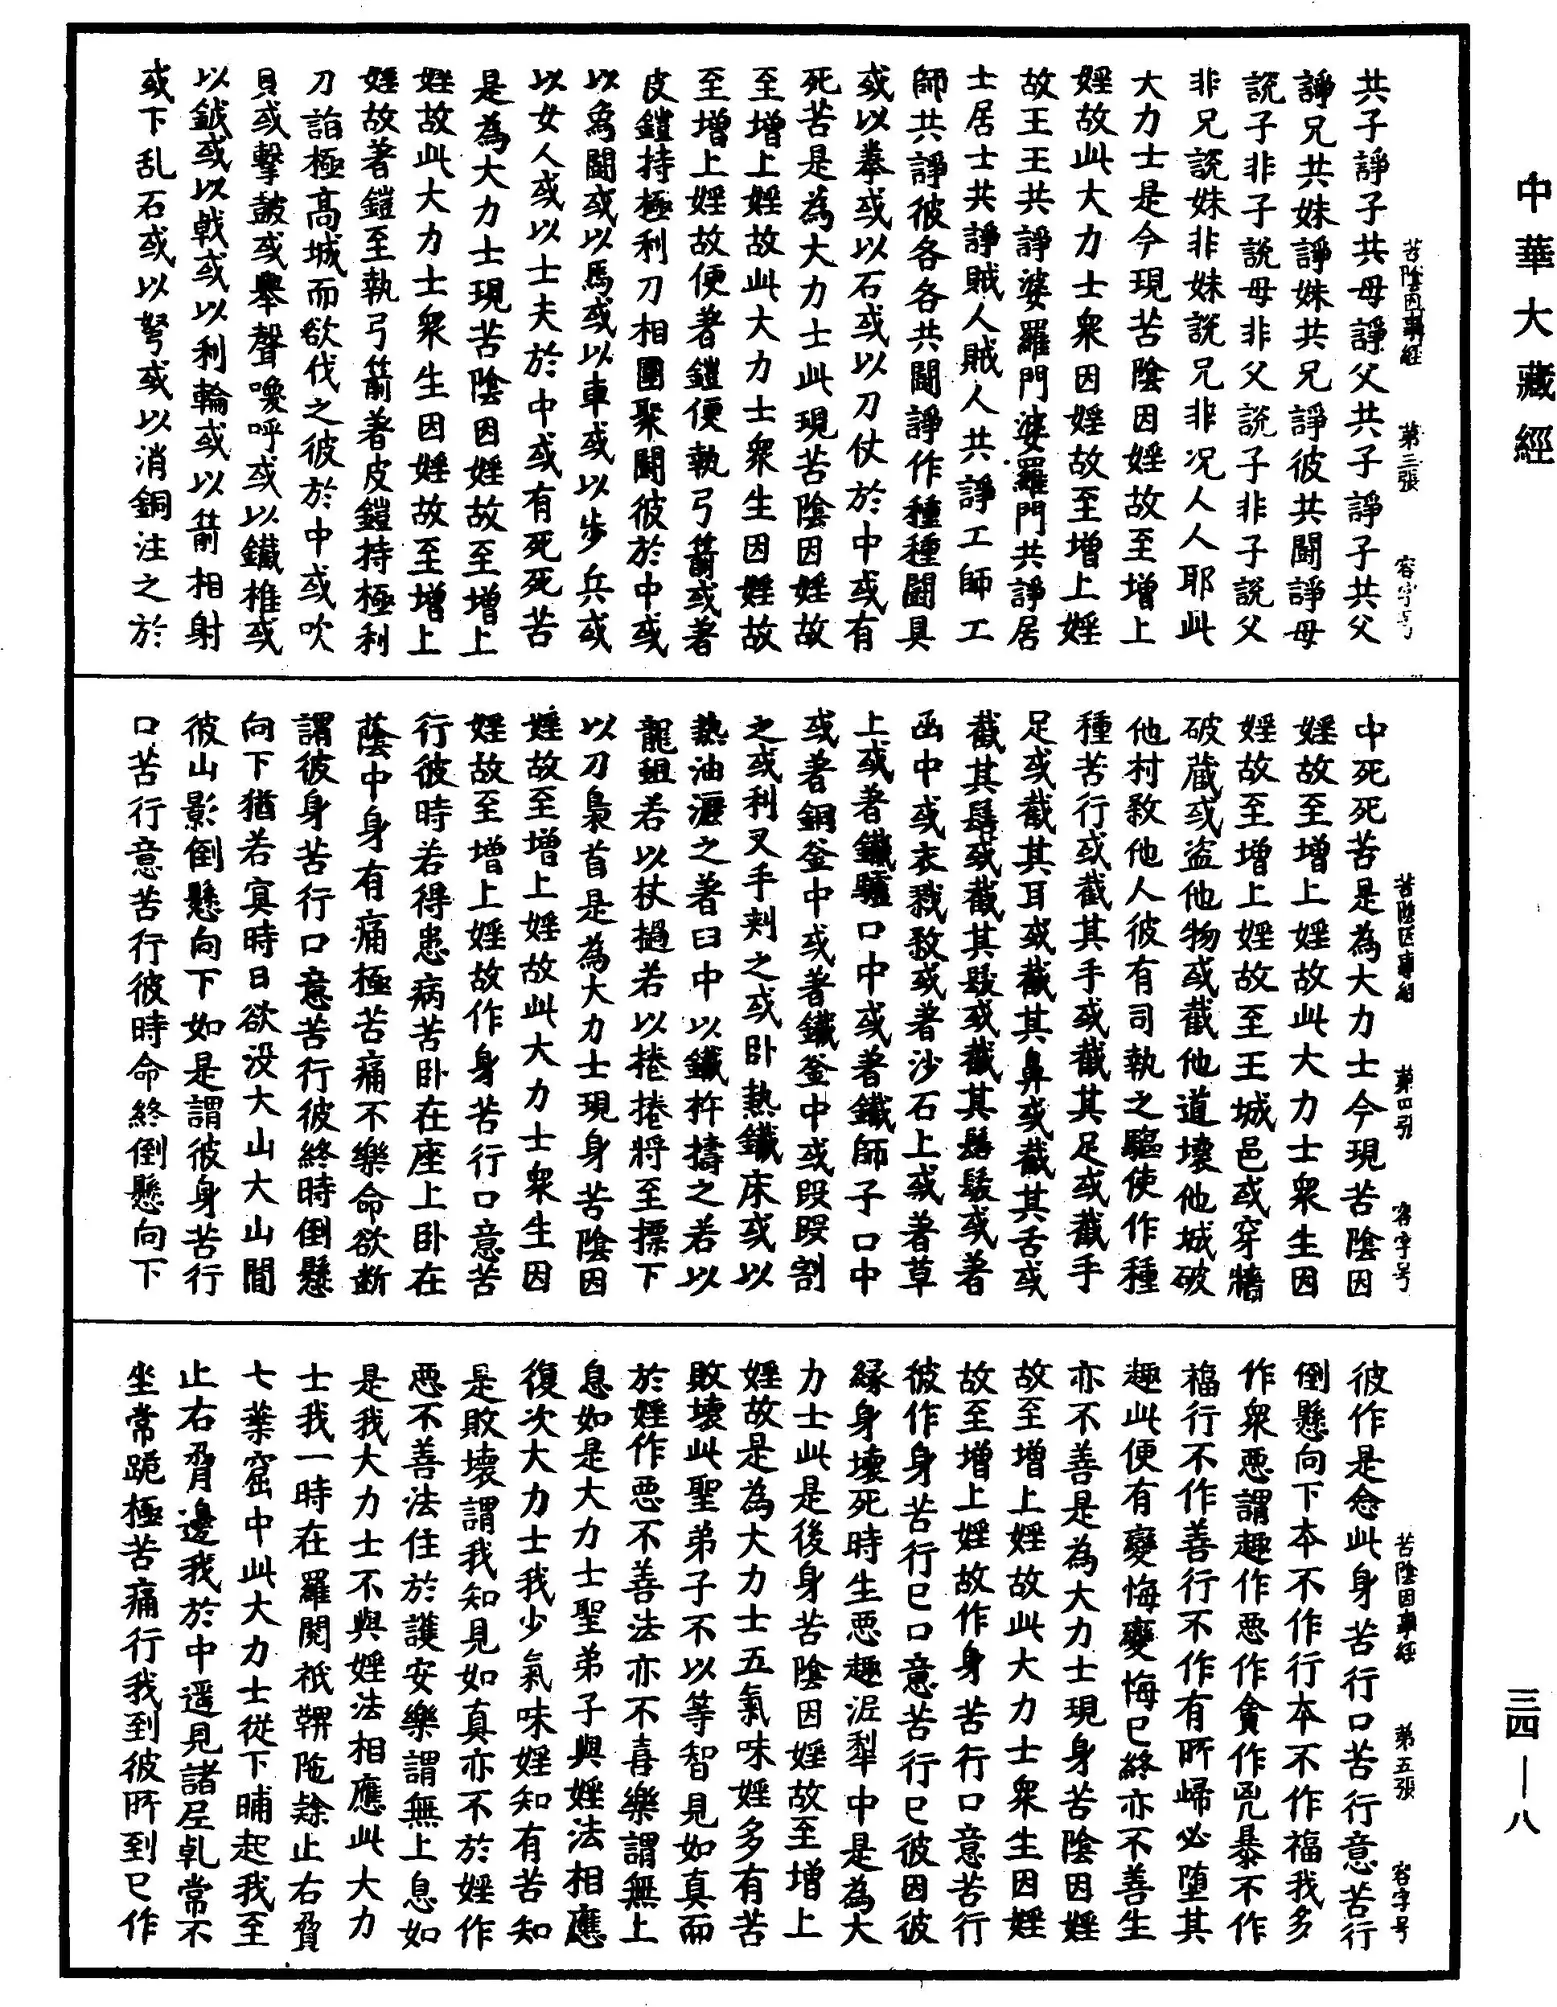 中華大藏經
苦陰因事經　第三張　容字号
共子諍子共母諍父共子諍子共父
諍兄共妹諍妹共兄諍彼共鬪諍母
説子非子説母非父説子非子説父
非兄説妹非妹説兄非况人人耶此
大力士是今現苦陰因婬故至增上
婬故此大力士衆因婬故至增上婬
故王王共諍婆羅門婆羅門共諍居
士居士共諍賊人賊人共諍工師工
師共諍彼各各共鬪諍作種種鬪具
或以拳或以石或以刀仗於中或有
死苦是為大力士此現苦陰因婬故
至增上婬故此大力士衆生因婬故
至增上婬故便著鎧便執弓箭或著
皮鎧持極利刀相圍聚鬪彼於中或
以象鬪或以馬或以車或以步兵或
以女人或以士夫於中或有死死苦
是為大力士現苦陰因婬故至增上
婬故此大力士衆生因婬故至增上
婬故著鎧至執弓箭著皮鎧持極利
刀詣極高城而欲伐之彼於中或吹
貝或擊鼓或舉聲喚呼或以鐵椎或
以鉞或以戟或以利輪或以箭相射
或下乱石或以弩或以消銅注之於
苦陰因事經　第四張　容字号
中死死苦是為大力士今現苦陰因
婬故至增上婬故此大力士衆生因
婬故至增上婬故至王城邑或穿牆
破藏或盗他物或截他道壞他城破
他村敎他人彼有司執之驅使作種
種苦行或截其手或截其足或截手
足或截其耳或截其鼻或截其舌或
截其髻或截其髮或截其髻髮或著
函中或衣戮敎或著沙石上或著草
上或著鐵驢口中或著鐵師子口中
或著銅釜中或著鐵釜中或段段割
之或利叉手刺之或卧熱鐵床或以
熱油灑之著臼中以鐵杵擣之若以
龍蛆若以杖撾若以棬棬將至摽下
以刀梟首是為大力士現身苦陰因
婬故至增上婬故此大力士衆生因
婬故至增上婬故作身苦行口意苦
行彼時若得患病苦卧在座上卧在
蔭中身有痛極苦痛不樂命欲断
謂彼身苦行口意苦行彼終時倒懸
向下猶若㝠時日欲没大山大山間
彼山影倒懸向下如是謂彼身苦行
口苦行意苦行彼時命終倒懸向下
苦陰因事經　第五張　容字号
彼作是念此身苦行口苦行意苦行
倒懸向下本不作行本不作福我多
作衆悪謂趣作悪作貪作兇暴不作
福行不作善行不作有所歸必堕其
趣此便有變悔變悔已終亦不善生
亦不善是為大力士現身苦陰因婬
故至增上婬故此大力士衆生因婬
故至增上婬故作身苦行口意苦行
彼作身苦行已口意苦行已彼因彼
縁身壞死時生悪趣泥犁中是為大
力士此是後身苦陰因婬故至增上
婬故是為大力士五氣味婬多有苦
敗壞此聖弟子不以等智見如真而
於婬作悪不善法亦不喜樂謂無上
息如是大力士聖弟子與婬法相應
復次大力士我少氣味婬知有苦知
是敗壞謂我知見如真亦不於婬作
悪不善法住於護安樂謂無上息如
是我大力士不與婬法相應此大力
士我一時在羅閱祇鞞陁𨻶止右脅
七葉窟中此大力士從下晡起我至
止右脅邊我於中遥見諸尼乹常不
坐常跪極苦痛行我到彼所到已作
三四—八